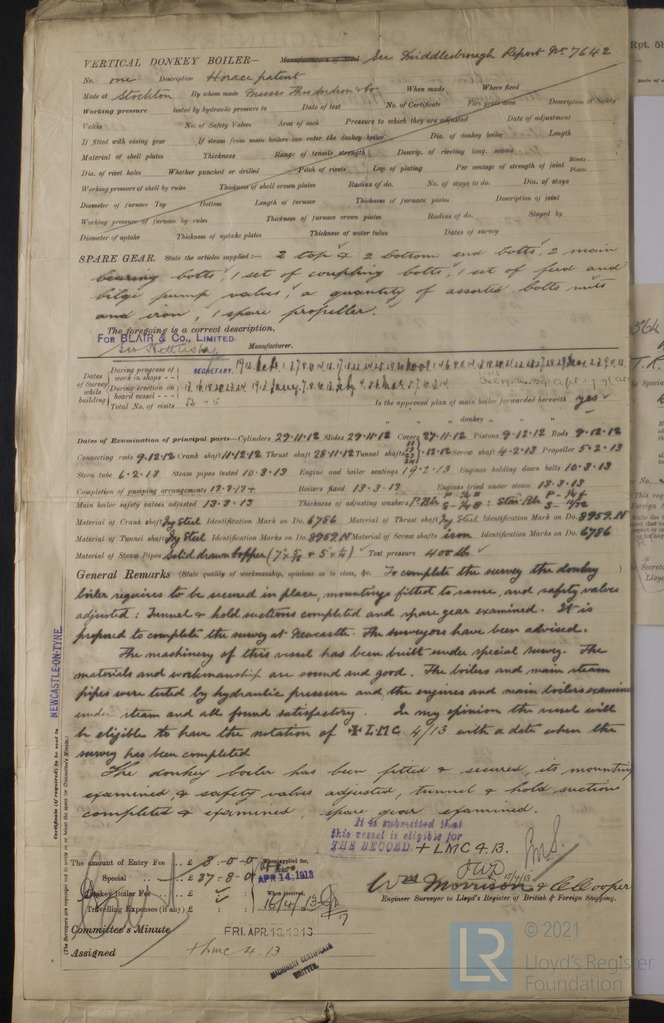 VERTICAL DONKEY BOILER— Manufacturers of Steel See Middlesbrough Report No. 7642
No. one Description Horace patent
Made at Stockton By whom made Messrs When made Where fixed
Working pressure tested by hydraulic pressure to Date of test No. of Certificate Fire grate area Description of Safety
Valves No. of Safety Valves Area of each Pressure to which they are adjusted Date of adjustment
If fitted with easing gear If steam from main boilers can enter the donkey boiler Dia. of donkey boiler Length
Material of shell plates Thickness Range of tensile strength Descrip. of riveting long. seams
Dia. of rivet holes Whether punched or drilled Pitch of rivets Lap of plating Per centage of strength of joint Rivets Plates
Working pressure of shell by rules Thickness of shell crown plates Radius of do. No. of stays to do. Dia. of stays
Diameter of furnace Top Bottom Length of furnace Thickness of furnace plates Description of joint
Working pressure of furnace by rules Thickness of furnace crown plates Radius of do. Stayed by
Diameter of uptake Thickness of uptake plates Thickness of water tubes Dates of survey
SPARE GEAR. State the articles supplied:— 2 top & 2 bottom end bolts, 2 main
bearing bolts, 1 set of coupling bolts, 1 set of feed and
bilge pump valves, a quantity of assorted bolts nuts
and iron, 1 spare propeller.
The foregoing is a correct description,
FOR BLAIR & CO., LIMITED.
Manufacturer.
SECRETARY.
Dates of Survey while building
During progress of work in shops - -
During erection on board vessel - - -
Total No. of visits
Is the approved plan of main boiler forwarded herewith yes
" " " donkey " " "
Dates of Examination of principal parts—Cylinders 29·11·12 Slides 29·11·12 Covers 27·11·12 Pistons 9·12·12 Rods 9·12·12
Connecting rods 9·12·12 Crank shaft 11·12·12 Thrust shaft 28·11·12 Tunnel shafts Screw shaft 4·2·13 Propeller 5·2·13
Stern tube 6·2·13 Steam pipes tested 10·3·13 Engine and boiler seatings 19·2·13 Engines holding down bolts 10·3·13
Completion of pumping arrangements 13·3·13 Boilers fixed 13·3·13 Engines tried under steam 13·3·13
Main boiler safety valves adjusted 13·3·13 Thickness of adjusting washers
Material of Crank shaft Ing Steel Identification Mark on Do. 6786 Material of Thrust shaft Ing Steel Identification Mark on Do. 8959.N
Material of Tunnel shafts Ing Steel Identification Marks on Do. 8959.N Material of Screw shafts iron Identification Marks on Do. 6786
Material of Steam Pipes Solid drawn Copper Test pressure 400 lb
General Remarks (State quality of workmanship, opinions as to class, &c. To complete the survey the donkey
boiler requires to be secured in place, mountings fitted to same, and safety valves
adjusted: Tunnel & hold suctions completed and spare gear examined. It is
proposed to complete the survey at Newcastle. The surveyors have been advised.
The machinery of this vessel has been built under special survey. The
materials and workmanship are sound and good. The boilers and main steam
pipes were tested by hydraulic pressure and the engines and main boilers examined
under steam and all found satisfactory. In my opinion the vessel will
be eligible to have the notation of + LMC 4/13 with a date when the
survey has been completed
The donkey boiler has been fitted & secured, its mountings
examined, & safety valves adjusted, tunnel & hold suctions
completed & examined, spare gear examined.
It is submitted that
this vessel is eligible for
THE RECORD + LMC 4.13.
15/4/13
The amount of Entry Fee . . £ 3 - 0 - 0 When applied for,
Special . . £ 37 - 8 - 0 APR 14 1913
Donkey Boiler Fee . . £ When received,
Travelling Expenses (if any) £ 16/4/13
Wm Morrison & C Cooper
Engineer Surveyor to Lloyd's Register of British & Foreign Shipping.
Committee's Minute FRI. APR. 18. 1913
Assigned + LMC 4.13
MACHINERY CERTIFICATE WRITTEN.
Certificate (if required) to be sent to NEWCASTLE-ON-TYNE
(The Surveyors are requested not to write on or below the space for Committee's Minute.)
© 2021
Lloyd's Register
Foundation
LR